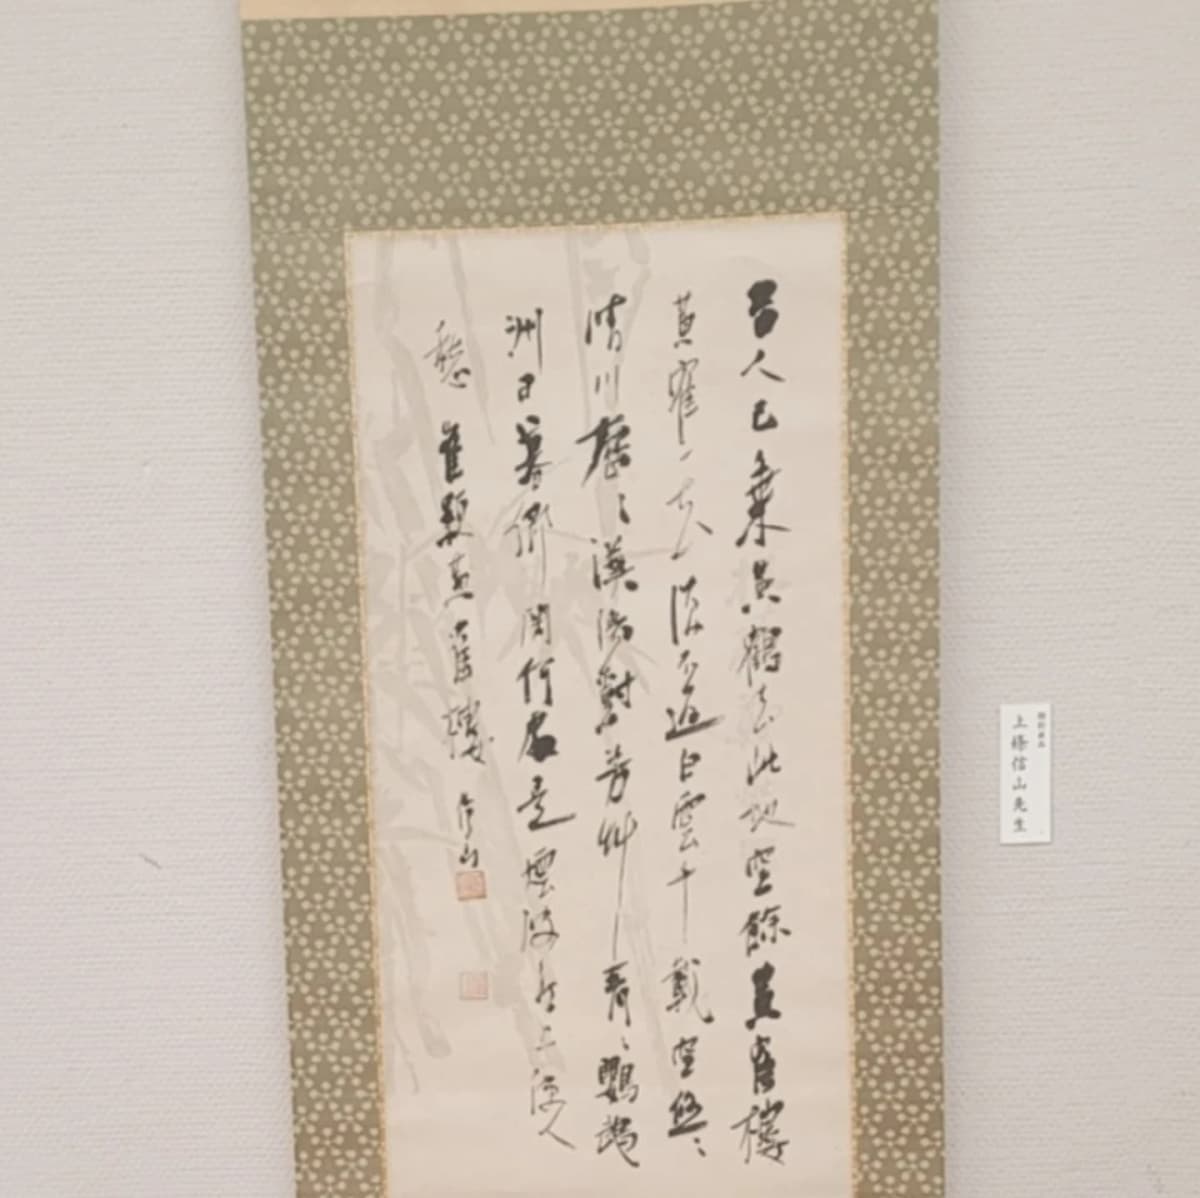 昔人已乘黄鶴去此地空餘黄寉樓
黄寉一去復不返白雲千載空悠〻
晴川歴〻漢陽樹芳艸萋〻鸚鵡
洲日暮郷関何處是煙波江上使人
愁 崔顥黄寉樓 信山
上條信山先生